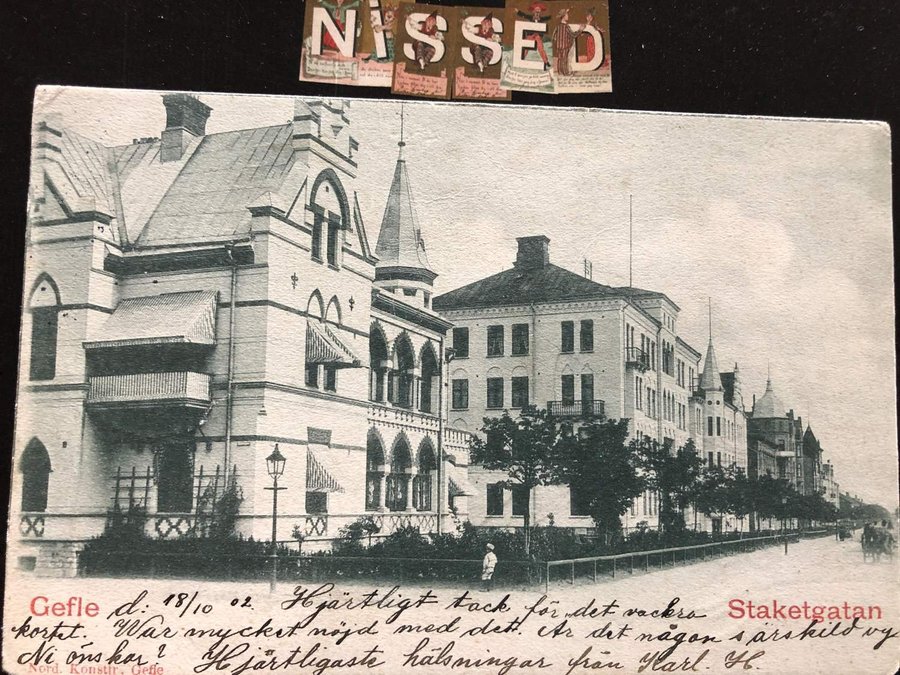 NISSED
Gefle d: 18/10 02. Hjärtligt tack för det vackra Staketgatan
kortet. War mycket nöjd med dett. Är det någon särskild vy
Ni önskar? Hjärtligaste hälsningar från Karl. H.
Nord. Konsttr. Gefle